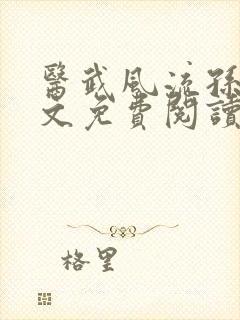 醫武風流孫
文免費閱讀
格里